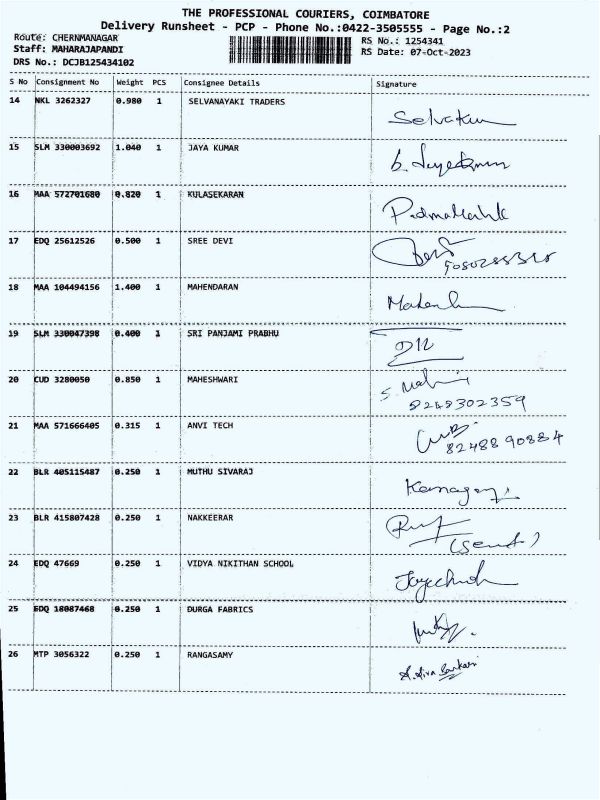 THE PROFESSIONAL COURIERS, COIMBATORE
Delivery Runsheet - PCP - Phone No.:0422-3505555 - Page No.:2
Route: CHERNMANAGAR
Staff: MAHARAJAPANDI
DRS No.: DCJB125434102
RS No.: 1254341
RS Date: 07-Oct-2023
S No Consignment No Weight PCS Consignee Details Signature
14 NKL 3262327 0.980 1 SELVANAYAKI TRADERS Selvakum
15 SLM 330003692 1.040 1 JAYA KUMAR
16 MAA 572701680 0.820 1 KULASEKARAN
17 EDQ 25612526 0.500 1 SREE DEVI
18 MAA 104494156 1.400 1 MAHENDARAN
19 SLM 330047398 0.400 1 SRI PANJAMI PRABHU
20 CUD 3280050 0.850 1 MAHESHWARI
8248302359
21 MAA 571666405 0.315 1 ANVI TECH
8248890884
22 BLR 405115487 0.250 1 MUTHU SIVARAJ
23 BLR 415807428 0.250 1 NAKKEERAR
24 EDQ 47669 0.250 1 VIDYA NIKITHAN SCHOOL
25 EDQ 18087468 0.250 1 DURGA FABRICS
26 MTP 3056322 0.250 1 RANGASAMY